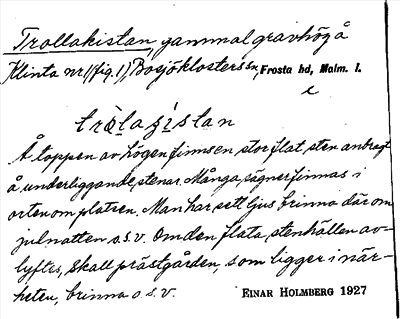 Trollakistan, gammal gravhög å
Klinta nr 1 (fig. 1), Bosjöklosters sn, Frosta hd, Malm. l.
tròlaʒistan
Å toppen av högen finns en stor flat sten anbragt
å underliggande stenar. Många sägner finnas i
orten om platsen. Man har sett ljus brinna där om
julnatten o.s.v. Om den flata stenhällen av-
lyftes, skall prästgården, som ligger i när-
heten, brinna o.s.v.
EINAR HOLMBERG 1927